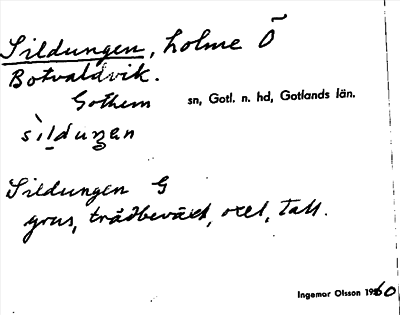 Sildungen, holme Ö
Botvaldvik.
Gothem sn, Gotl. n. hd, Gotlands län.
sìlduŋen
Sildungen G
grus, trädbeväxt, oxel, tall.
Ingemar Olsson 1960